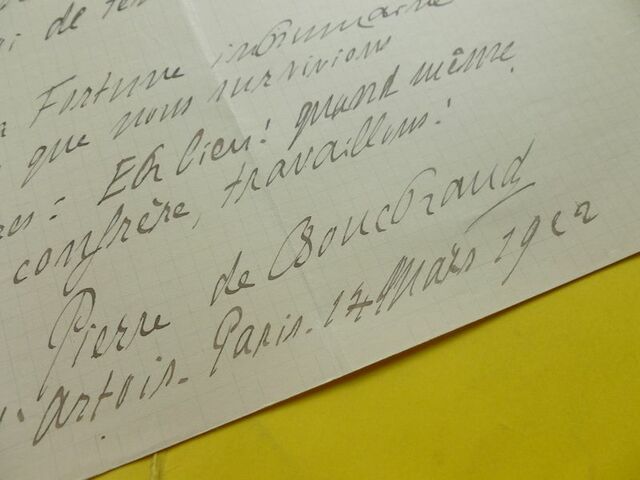 de
Fortune inhumaine
que nous survivions
res: Eh bien! quand même,
confrère, travaillons!
Pierre de Bouchaud
d'Artois. Paris. 14 Mars 1912